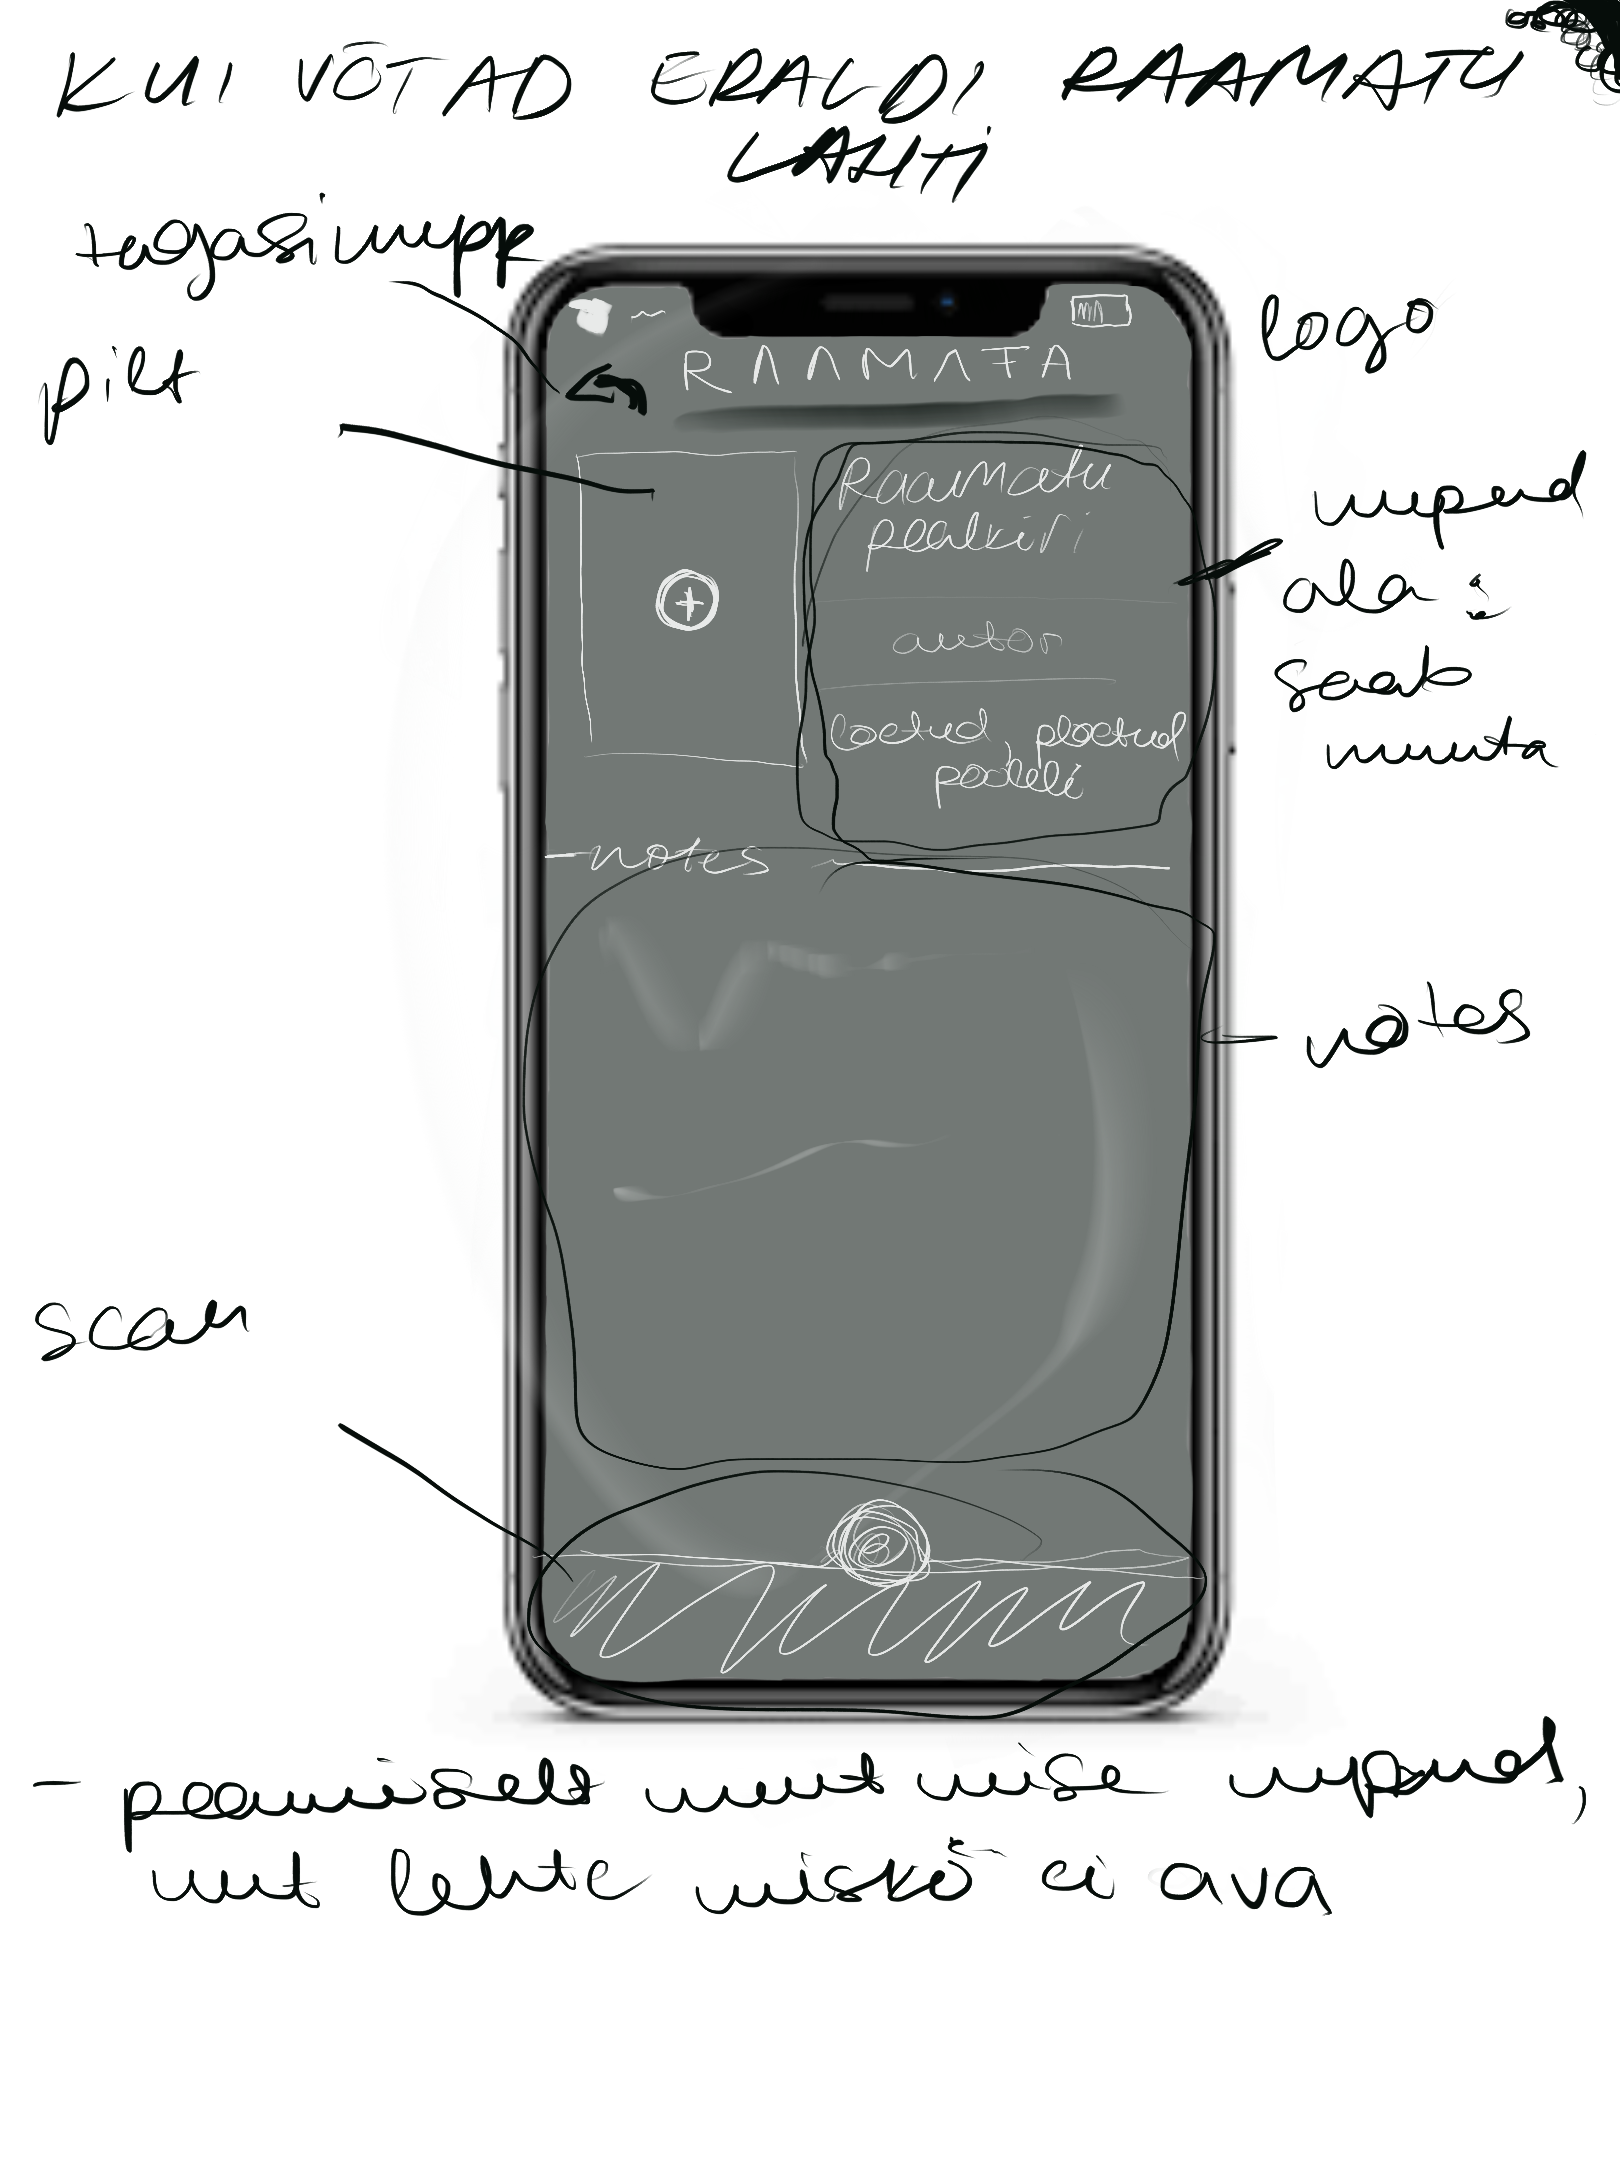 KUI VÕTAD ERALDI RAAMATU
LAHTI
tagasinupp
pilt
logo
RAAMATA
Raamatu
pealkiri
autor
loetud, ploetud
pooleli
nupud
ala:
saab
muuta
-notes
notes
scan
- peamiselt muutmise nupud,
uut lehte miski ei ava